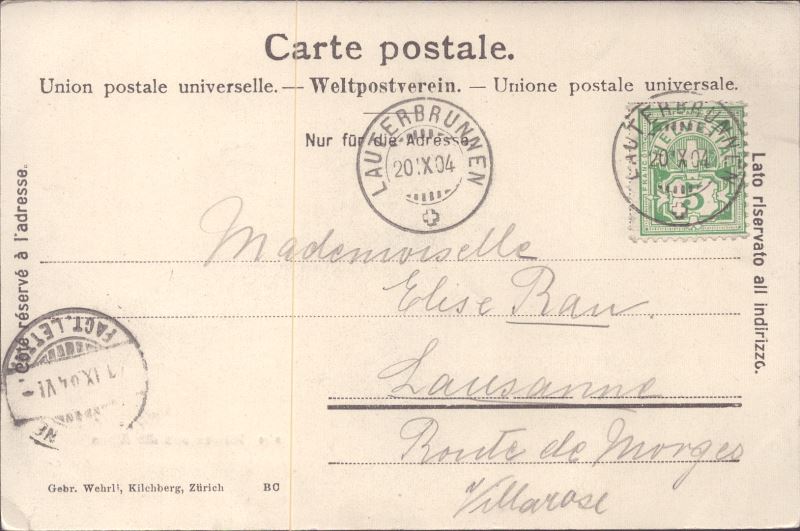 Carte postale.
Union postale universelle. — Weltpostverein. — Unione postale universale.
Nur für die Adresse.
LAUTERBRUNNEN
20.IX.04
LAUTERBRUNNEN
20.IX.04
5
Côté réservé à l'adresse.
Lato riservato all indirizzo.
Mademoiselle
Elise Rau.
Lausanne
Route de Morges
Villarose
FACT. LETT
IX.04.VI
Gebr. Wehrli, Kilchberg, Zürich BC